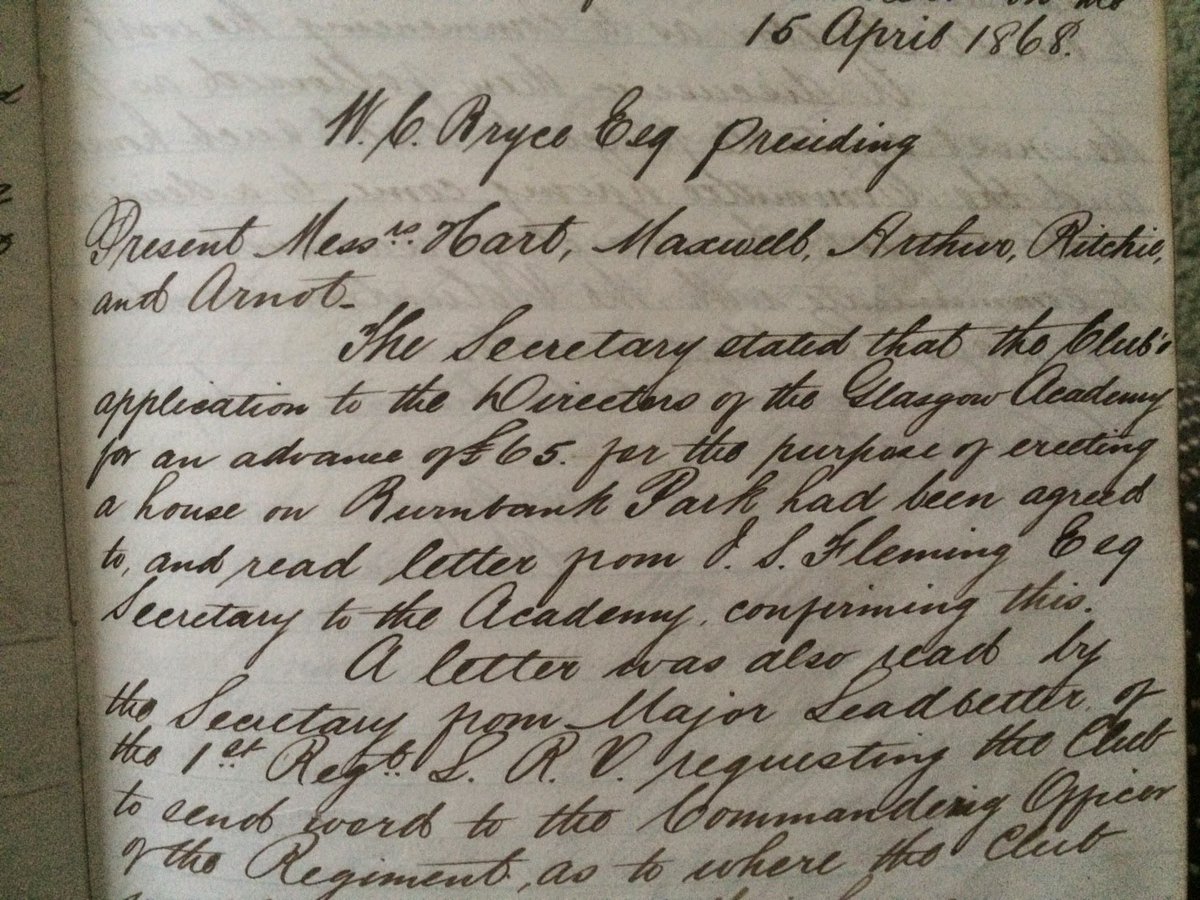 15 April 1868.
W. C. Bryce Esq presiding
Present Messrs Hart, Maxwell, Arthur, Ritchie,
and Arnot.
The Secretary stated that the Club's
application to the Directors of the Glasgow Academy
for an advance of £65. for the purpose of erecting
a house on Burnbank Park had been agreed
to, and read letter from J. S. Fleming Esq
Secretary to the Academy, confirming this.
A letter was also read by
the Secretary from Major Leadbetter of
the 1st Regt. L. R. V. requesting the Club
to send word to the Commanding Officer
of the Regiment, as to where the Club